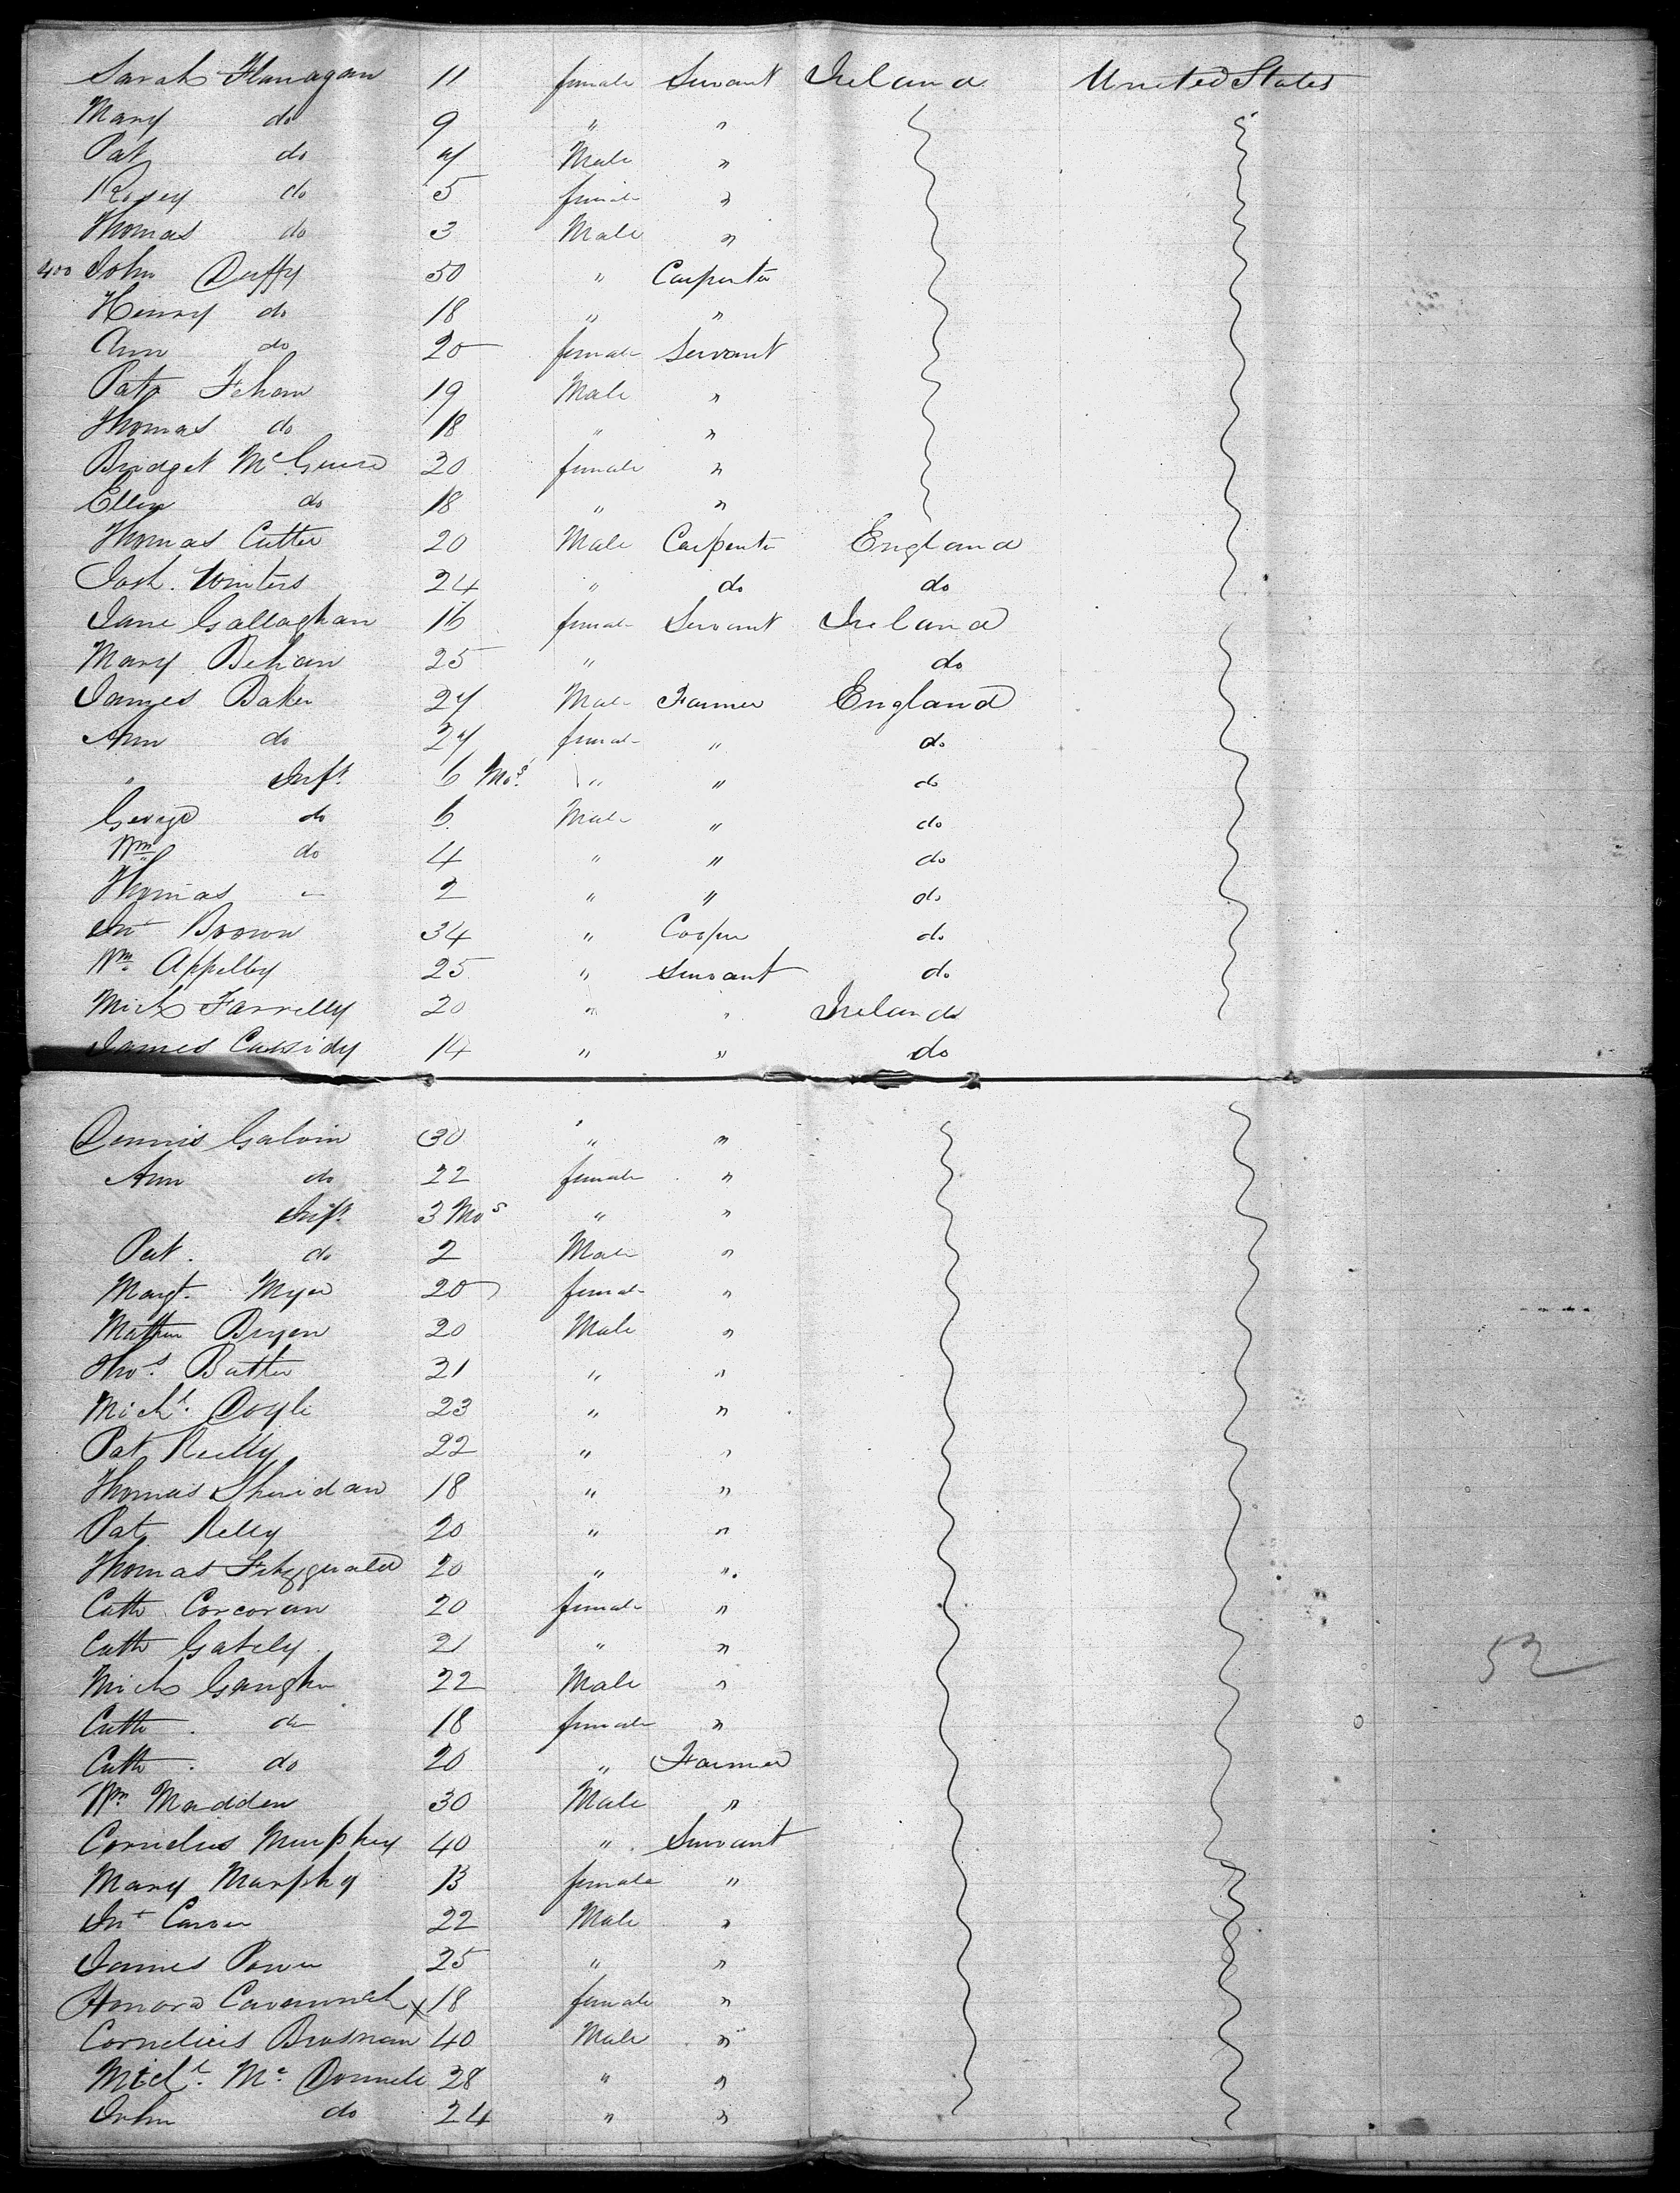 Sarah Flanagan 11 female Servant Ireland United States
Mary do 9 " "
Pat do 7 Male "
Rosey do 5 female "
Thomas do 3 Male "
400 John Duffy 50 " Carpenter
Henry do 18 " "
Ann do 20 female Servant
Pat 19 Male "
Thomas do 18 " "
Bridget McGuire 20 female "
Ellen do 18 " "
Thomas Cutter 20 Male Carpenter England
Josh. Winters 24 " do do
Jane Gallaghan 16 female Servant Ireland
Mary Behan 25 " do
James Baker 27 Male Farmer England
Ann do 27 female " do
" Inft. 6 Mos. " " do
George do 6 Male " do
Wm do 4 " " do
Thomas " 2 " " do
Jno Brown 34 " Cooper do
Wm. Appelby 25 " Servant do
Mich Farrelly 20 " " Ireland
James Cassidy 14 " " do
Dennis Galvin 30 " "
Ann do 22 female "
Inft. 3 Mos " "
Pat. do 2 Male "
Margt. Myer 20 female "
Mathew Bryen 20 Male "
Thos. Butler 21 " "
Michl. Doyle 23 " "
Pat Reilly 22 " "
Thomas Sheridan 18 " "
Pat Relly 20 " "
Thomas Fitzgerald 20 " "
Cath Corcoran 20 female "
Cath Gately 21 " "
52
Mich 22 Male "
Cath. do 18 female "
Cath. do 20 " Farmer
Wm Madden 30 Male "
Cornelius Murphey 40 " Servant
Mary Murphy 13 female "
Jno Carver 22 Male "
James Power 25 " "
Honora Cavannah x 18 female "
Cornelius Brosnan 40 Male "
Michl. McDonnele 28 " "
John do 24 " "